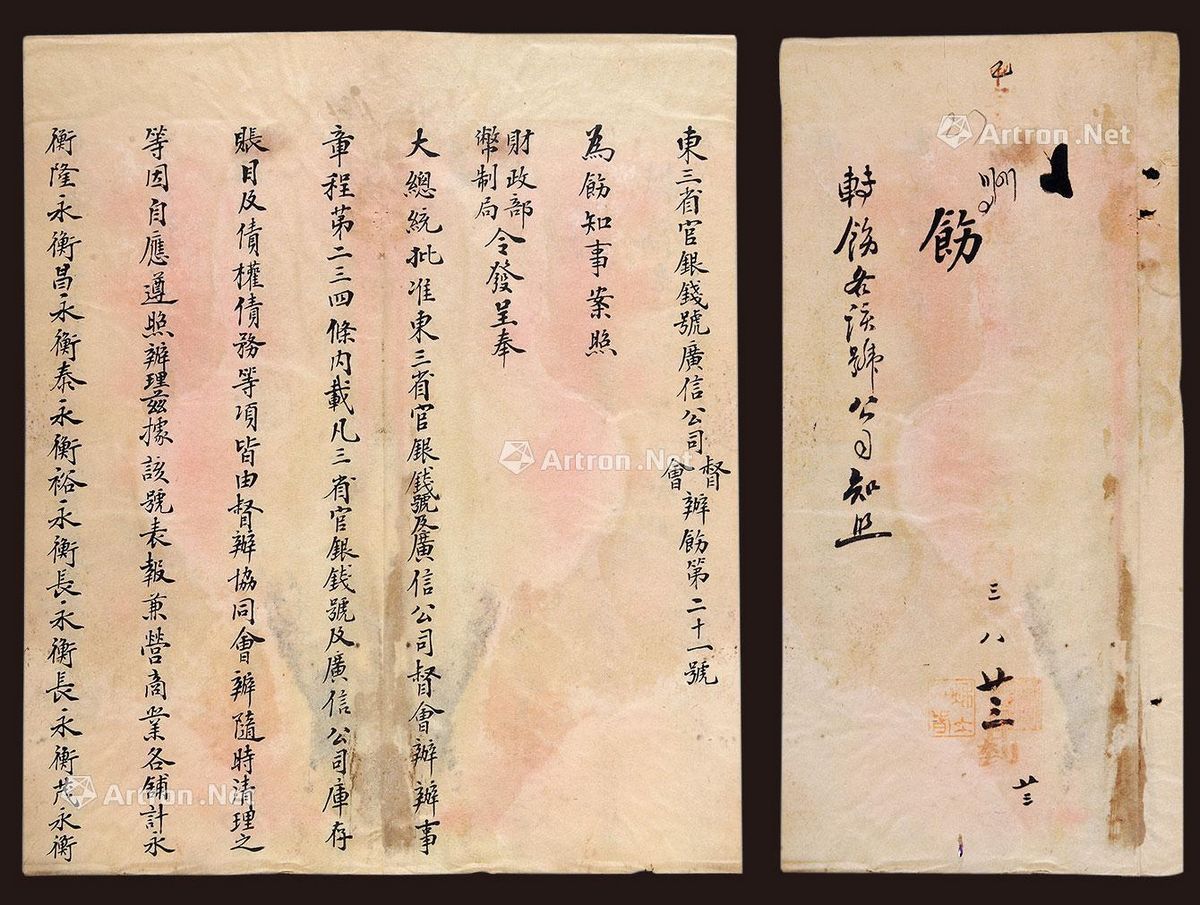 東三省官銀錢號廣信公司督會辦飭第二十一號
為飭知事案照
財政部幣制局令發呈奉
大總統批准東三省官銀錢號及廣信公司督會辦辦事
章程第二三四條內載凡三省官銀錢號及廣信公司庫存
賬目及債權債務等項皆由督辦協同會辦隨時清理之
等因自應遵照辦理茲據該號表報兼營商業各舖計永
衡隆永衡昌永衡泰永衡裕永衡長永衡長永衡茂永衡
飭
轉飭各該號公司知照
三
八
廿三
廿三
到
Artron.Net
Artron.Net
Artron.Net
Artron.Net